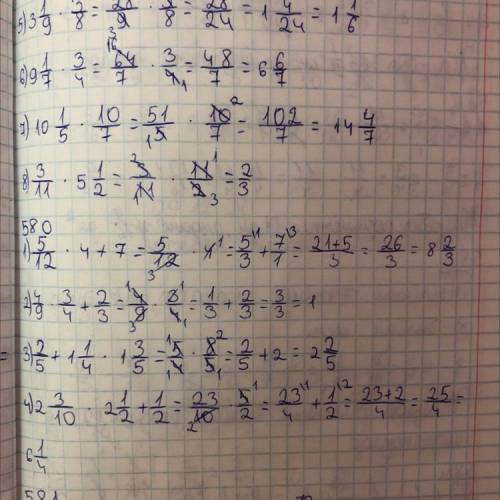 5) 3 1/9 · 3/8 = 28/9 · 3/8 = 28/24 = 1 4/24 = 1 1/6
6) 9 1/7 · 3/4 = 64/7 · 3/4 = 48/7 = 6 6/7
7) 10 1/5 · 10/7 = 51/5 · 10/7 = 102/7 = 14 4/7
8) 3/11 · 5 1/2 = 3/11 · 11/2 = 2/3
580
1) 5/12 · 4 + 7 = 5/12 · 4 = 5/3 + 7/1 = 21+5/3 = 26/3 = 8 2/3
2) 4/9 · 3/4 + 2/3 = 4/9 · 3/4 = 1/3 + 2/3 = 3/3 = 1
3) 2/5 + 1 1/4 · 1 3/5 = 5/4 · 8/5 = 2/5 + 2 = 2 2/5
4) 2 3/10 · 2 1/2 + 1/2 = 23/10 · 5/2 = 23/4 + 1/2 = 23+2/4 = 25/4 =
6 1/4
581